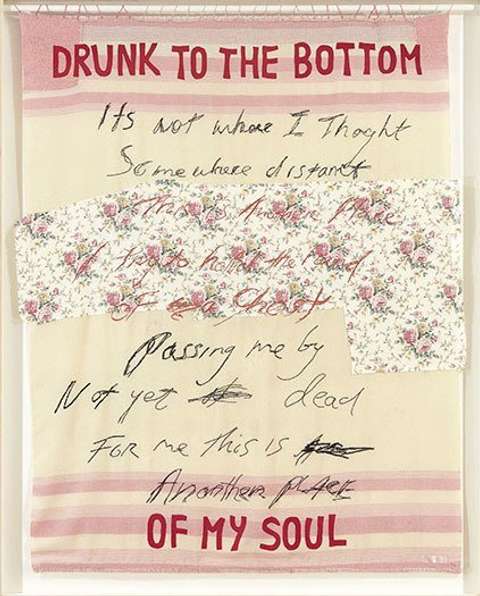 DRUNK TO THE BOTTOM
Its not where I Thoght
Somewhere distant
This is Another Place
I try to hold the hand
of a Ghost
Passing me by
Not yet dead
FOR me this is
Anorther PLACE
OF MY SOUL